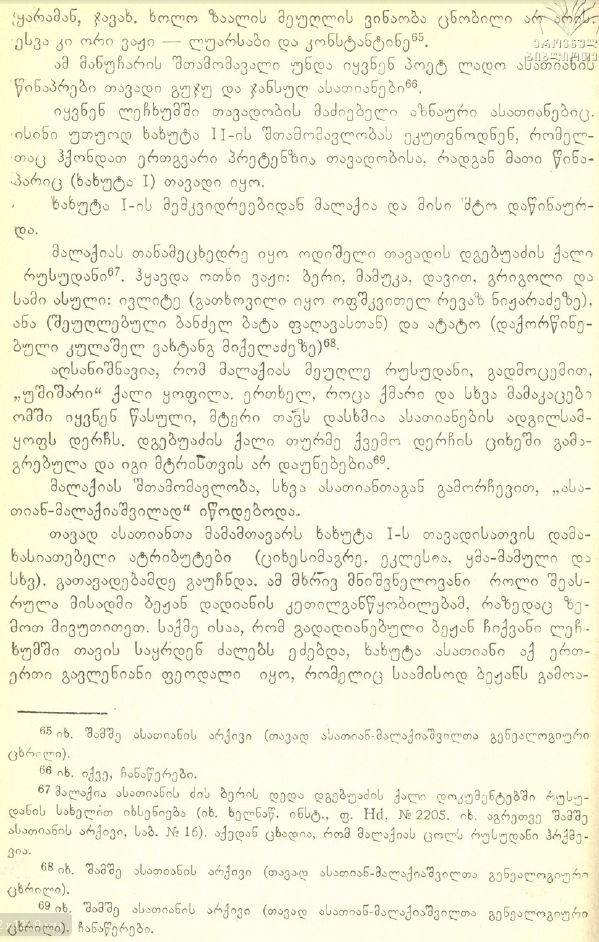 ყარამან, ჯავახ. ხოლო ზაალის მეუღლის ვინაობა ცნობილი არ არის.
ესვა კი ორი ვაჟი — ლუარსაბი და კონსტანტინე⁶⁵.
ამ მანუჩარის შთამომავალი უნდა იყვნენ პოეტ ლადო ასათიანის
წინაპრები თავადი გუჯუ და ჯანსუღ ასათიანები⁶⁶.
იყვნენ ლეჩხუმში თავადობის მაძიებელი აზნაური ასათიანებიც.
ისინი უთუოდ ხახუტა II-ის შთამომავლობას ეკუთვნოდნენ, რომელ-
თაც ჰქონდათ ერთგვარი პრეტენზია თავადობისა, რადგან მათი წინა-
პარიც (ხახუტა I) თავადი იყო.
ხახუტა I-ის მემკვიდრეებიდან მალაქია და მისი შტო დაწინაურ-
და.
მალაქიას თანამეცხედრე იყო ოდიშელი თავადის დგებუაძის ქალი
რუსუდანი⁶⁷. ჰყავდა ოთხი ვაჟი: ბერი, მამუკა, დავით, გრიგოლი და
სამი ასული: ივლიტე (გათხოვილი იყო ოფშკვითელ რევაზ ნიჟარაძეზე),
ანა (შეუღლებული ბანძელ ბატა ფაღავასთან) და ატატო (დაქორწინე-
ბული კულაშელ ვახტანგ მიქელაძეზე)⁶⁸.
აღსანიშნავია, რომ მალაქიას მეუღლე რუსუდანი, გადმოცემით,
„უშიშარი“ ქალი ყოფილა. ერთხელ, როცა ქმარი და სხვა მამაკაცები
ომში იყვნენ წასული, მტერი თავს დასხმია ასათიანების ადგილსამ-
ყოფს დერჩს. დგებუაძის ქალი თურმე ქვემო დერჩის ციხეში გამა-
გრებულა და იგი მტრისთვის არ დაუნებებია⁶⁹.
მალაქიას შთამომავლობა, სხვა ასათიანთაგან გამორჩევით, „ასა-
თიან-მალაქიაშვილად“ იწოდებოდა.
თავად ასათიანთა მამამთავარს ხახუტა I-ს თავადისათვის დამა-
ხასიათებელი ატრიბუტები (ციხესიმაგრე, ეკლესია, ყმა-მამული და
სხვ). გათავადებამდე გაუჩნდა. ამ მხრივ მნიშვნელოვანი როლი შეას-
რულა მისადმი ბეჟან დადიანის კეთილგანწყობილებამ, რაზედაც ზე-
მოთ მივუთითეთ. საქმე ისაა, რომ გადადიანებული ბეჟან ჩიქვანი ლეჩ-
ხუმში თავის საყრდენ ძალებს ეძებდა, ხახუტა ასათიანი აქ ერთ-
ერთი გავლენიანი ფეოდალი იყო, რომელიც საამისოდ ბეჟანს გამოა-
⁶⁵ იხ. შამშე ასათიანის არქივი (თავად ასათიან-მალაქიაშვილთა გენეალოგიური
ცხრილი).
⁶⁶ იხ. იქვე, ჩანაწერები.
⁶⁷ მალაქია ასათიანის ძის ბერის დედა დგებუაძის ქალი დოკუმენტებში რუსუ-
დანის სახელით იხსენიება (იხ. ხელნაწ. ინსტ., ფ. Hd, № 2205. იხ. აგრეთვე შამშე
ასათიანის არქივი, საბ. № 16). აქედან ცხადია, რომ მალაქიას ცოლს რუსუდანი ჰრქმე-
ვია.
⁶⁸ იხ. შამშე ასათიანის არქივი (თავად ასათიან-მალაქიაშვილთა გენეალოგიური
ცხრილი).
⁶⁹ იხ. შამშე ასათიანის არქივი (თავად ასათიან-მალაქიაშვილთა გენეალოგიური
ცხრილი). ჩანაწერები.